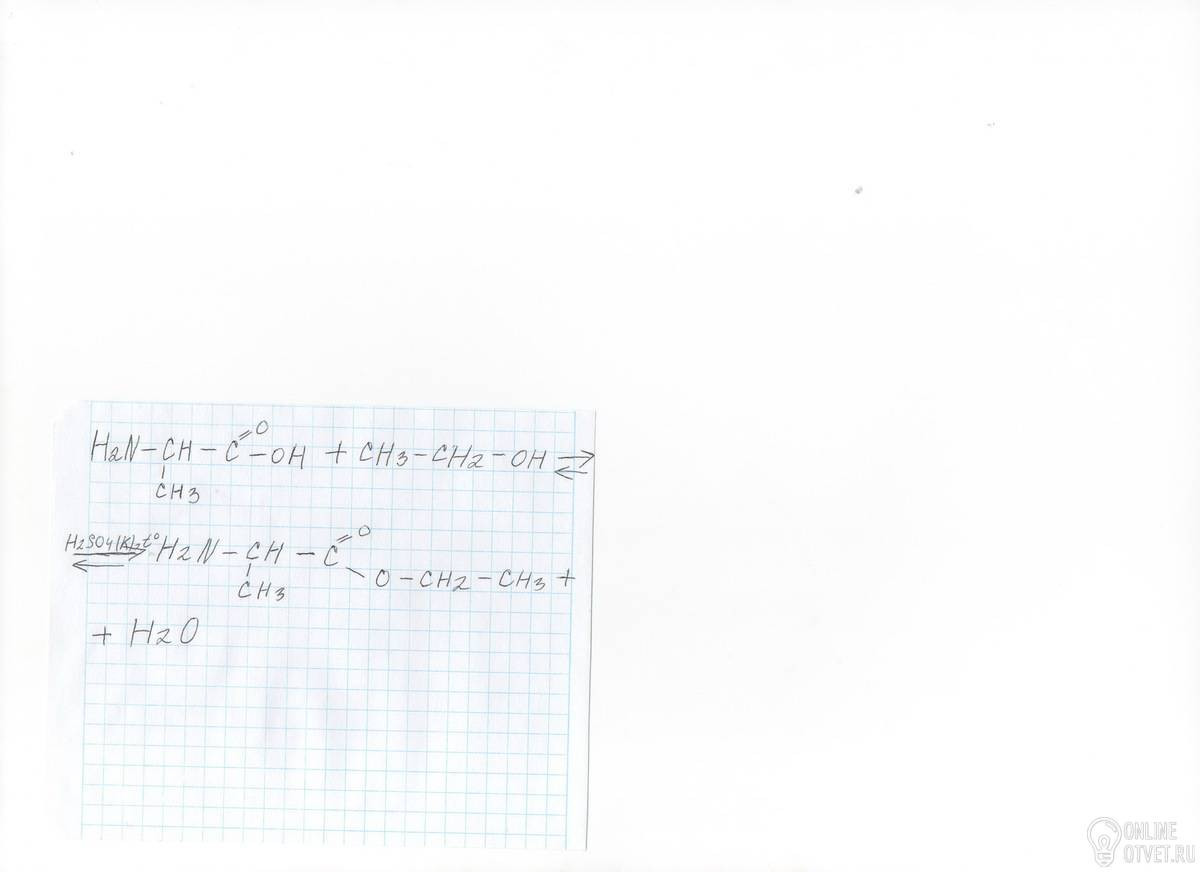 H2N-CH-C=O-OH + CH3-CH2-OH ⇄
CH3
H2SO4(к), t° ⇄ H2N-CH-C=O
CH3 O-CH2-CH3 +
+ H2O
ONLINE
OTVET.RU